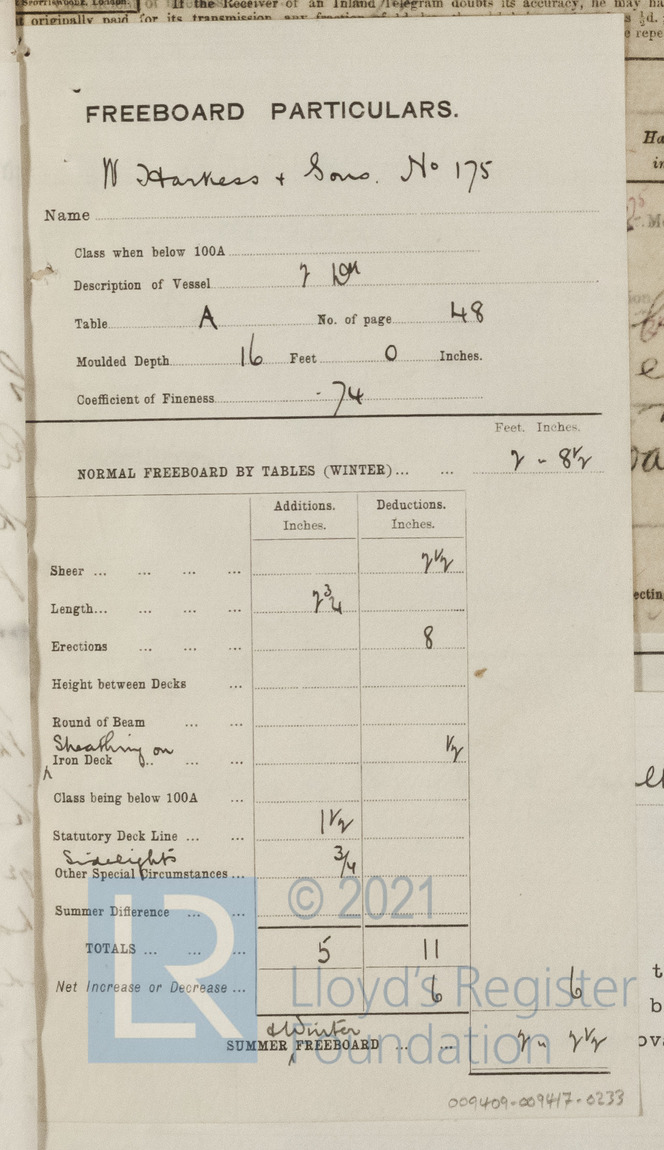 Spottiswoode, London.
of If the Receiver of an Inland Telegram doubts its accuracy, he may ha
originally paid for its transmission, any fraction of
s ½d.
e repe
FREEBOARD PARTICULARS.
W Harkess + Sons. No 175
Name
Class when below 100A
Description of Vessel 2 Dk
Table A No. of page 48
Moulded Depth 16 Feet 0 Inches.
Coefficient of Fineness ·74
Feet. Inches.
NORMAL FREEBOARD BY TABLES (WINTER)... ... 2 - 8½
Additions. Inches. Deductions. Inches.
Sheer ... ... ... ... 2½
Length... ... ... ... 2¾
Erections ... ... ... 8
Height between Decks ...
Round of Beam ... ...
Sheathing on
Iron Deck ... ... ... ½
Class being below 100A ...
Statutory Deck Line ... ... 1½
Sidelights
Other Special Circumstances ... ¾
Summer Difference ... ...
TOTALS ... ... ... 5 11
Net Increase or Decrease ... 6 6
& Winter
SUMMER FREEBOARD ... ... 2 - 2½
009409-009417-0233
LR
© 2021
Lloyd's Register
Foundation